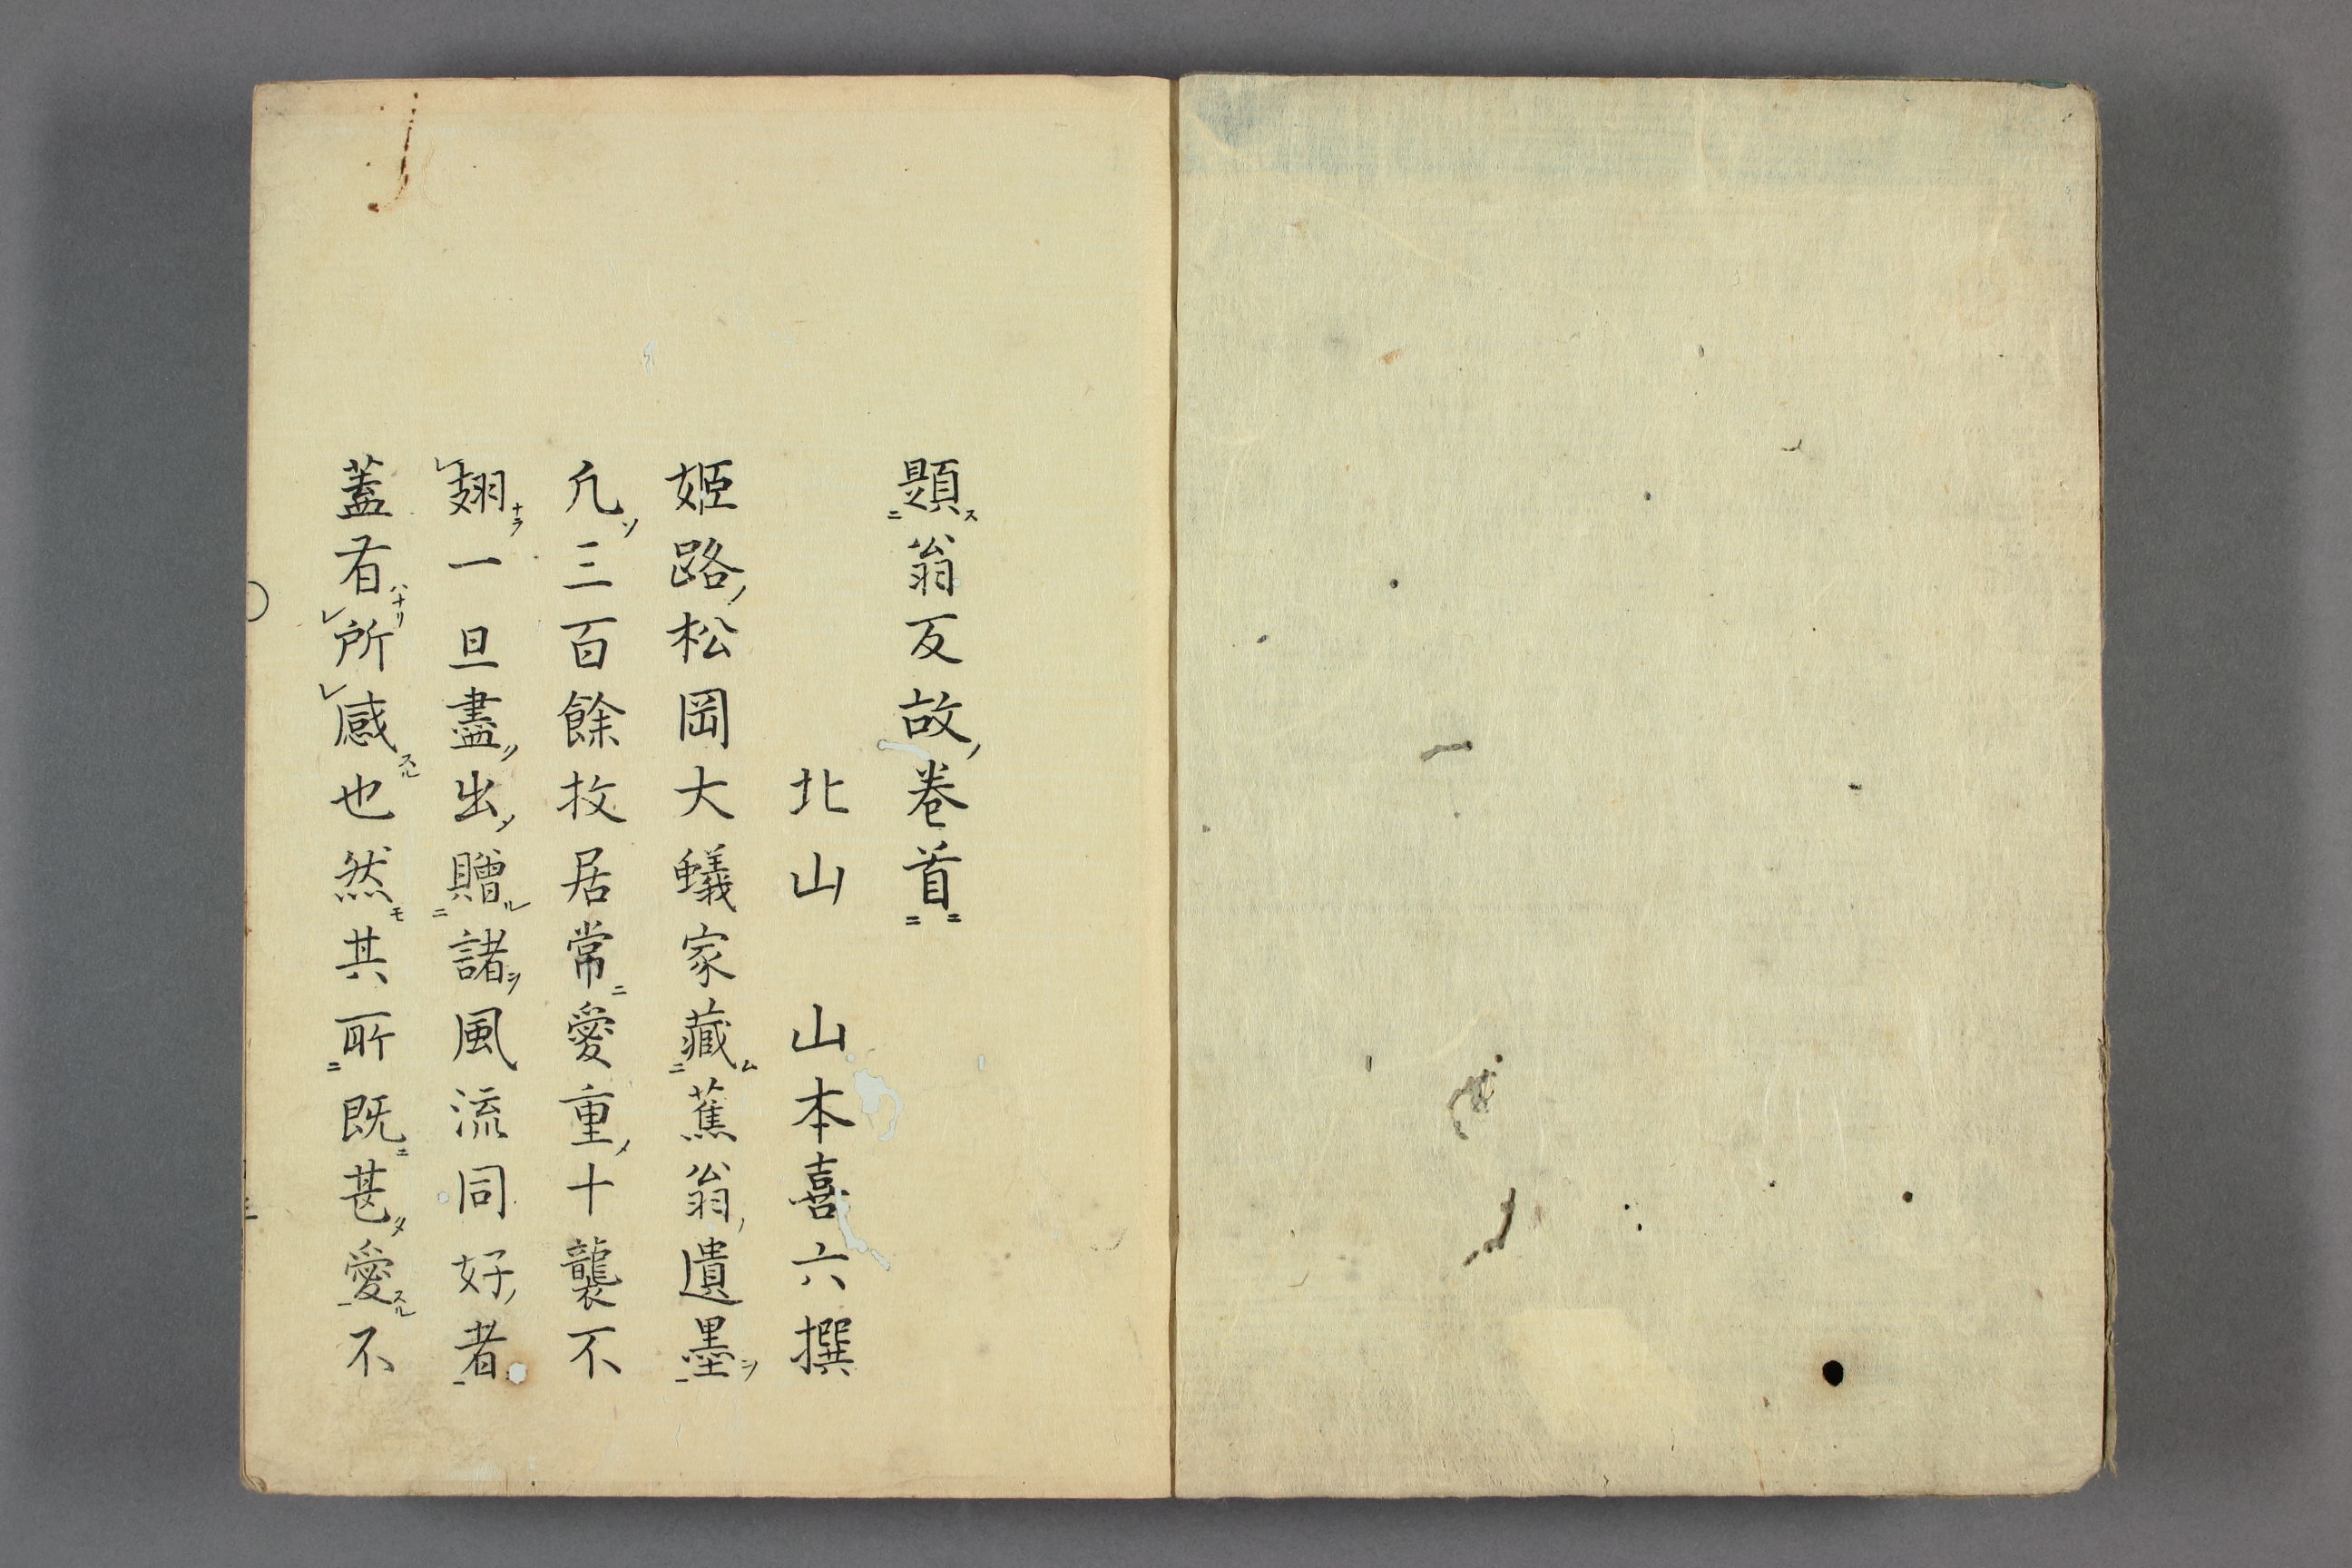 題翁反故卷首
北山 山本喜六撰
姬路松岡大蟻家藏蕉翁遺墨
凢三百餘枚居常愛重十襲不
翅一旦盡出贈諸風流同好者
蓋有所感也然其所既甚愛不